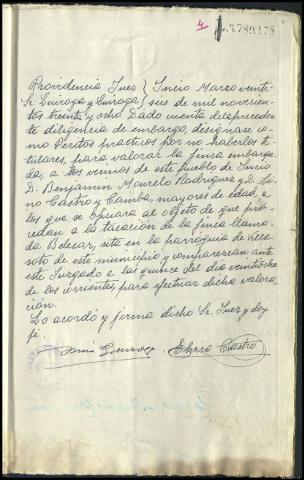 4 3.789.178
Providencia Juez } Incio Marzo veinti-
Sr. Quiroga y Quiroga } seis de mil novecien-
tos treinta y ocho. Dado cuenta de la precede-
nte diligencia de embargo, desígnase co-
mo Peritos practicos por no haberlos ti-
tulares, para valorar la finca embarga-
da, a los vecinos de este pueblo de Incio
D. Benjamin Mourelo Rodriguez y D. Li-
no Castro y Camba, mayores de edad, a
los que se oficiara al objeto de que pro-
cedan a la tasación de la finca llama-
da Belesar, sita en la parroquia de Villa-
soto de este municipio y comparezcan ante
este Juzgado a las quince del dia veintiocho
de los corrientes, para efectuar dicha valora-
ción.
Lo acordó y firma dicho Sr. Juez y doy
fé.
Quiroga Castro